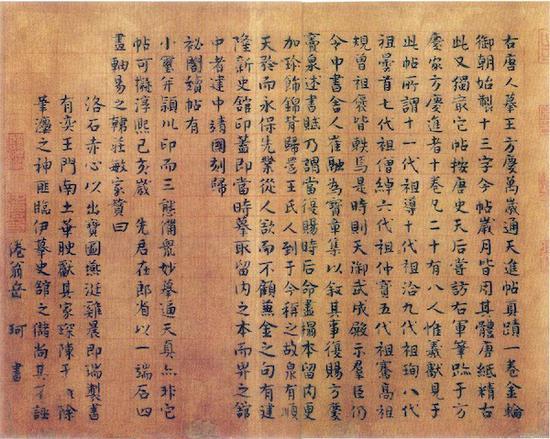 右唐人摹王方慶萬歲通天進帖真蹟一卷金輪
御朝始製十三字今帖歲月皆用其體唐紙精古
此又獨冠它帖按唐史天后嘗訪右軍筆蹟于方
慶家方慶進者十卷凡二十有八人惟羲獻見于
此帖所謂十一代祖導十代祖洽九代祖珣八代
祖曇首七代祖僧綽六代祖仲寶五代祖騫高祖
規曾祖褒皆軼焉是時則天御武成殿示羣臣仍
令中書舍人崔融為寶章集以敘其事復賜方慶
竇臮述書賦乃謂當復賜時后命盡搨本留內更
加珍飾錦背歸還王氏人到于今稱之故臮有順
天矜而永保先業從人欲而不顧兼金之句有建
隆新史館印蓋即當時摹取留內之本而畀之館
中者建中靖國刻歸
祕閣續帖有
小璽并潁川印而三態備眾妙摹逼天真亦非它
帖可擬淳熙己亥歲 先君在郎省以一端石四
畫軸易之韓莊敏家贊曰
洛石赤心以出寶圖燕逝雞晨即瑞製書
有奕王門南土華腴獻其家琛陳于 除
筆濩之神匪臨伊摹史館之儲尚其可誣
倦翁岳珂書